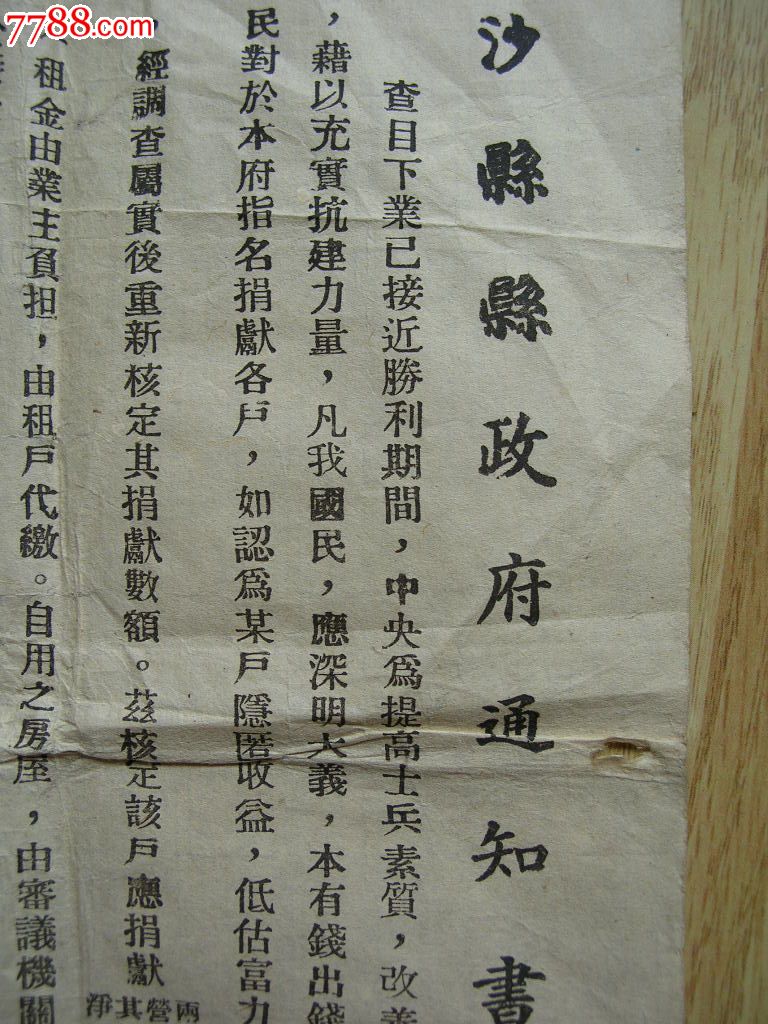 7788.com
沙縣縣政府通知書
查目下業已接近勝利期間，中央爲提高士兵素質，改善
，藉以充實抗建力量，凡我國民，應深明大義，本有錢出錢
民對於本府指名捐獻各戶，如認爲某戶隱匿收益，低估富力
，經調查屬實後重新核定其捐獻數額。茲核定該戶應捐獻
兩營其淨
租金由業主負担，由租戶代繳。自用之房屋，由審議機關